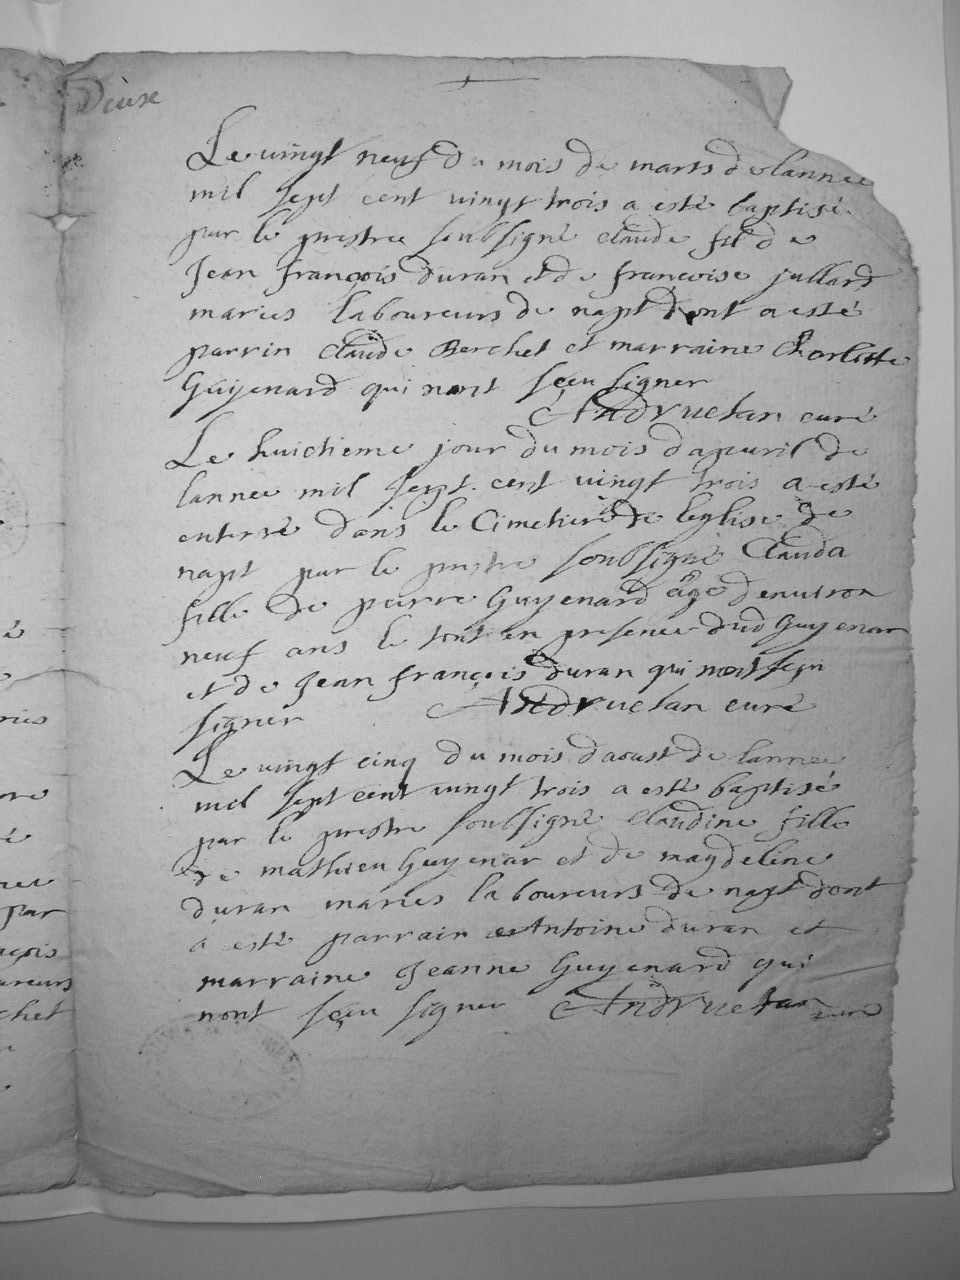 Deuxe
Le vingt neuf du mois de mars de lannee
mil sept cent vingt trois a esté baptisé
par le prestre soubsigné claude fil de
Jean françois duran et de francoise jullard
maries laboureurs de napt dont a esté
parrin claude Berchet et marraine Charlotte
Guyenard qui nont sçeu signer
Andruetan curé
Le huictieme jour du mois dapvril de
lannee mil sept cent vingt trois a esté
enterré dans le Cimetiere de leglise de
napt par le prestre soubsigné Clauda
fille de pierre Guyenard âgé denviron
neuf ans le tout en presence dud Guyenar
et de Jean françois duran qui nont sçeu
signer Andruetan curé
Le vingt cinq du mois daoust de lannee
mil sept cent vingt trois a esté baptisé
par le prestre soubsigné claudine fille
de mathieu Guyenar et de magdeleine
duran maries laboureurs de napt dont
a esté parrain Antoine duran et
marraine Jeanne Guyenard qui
nont sçeu signer Andruetan
curé
ries
par
çois
ureurs
chet